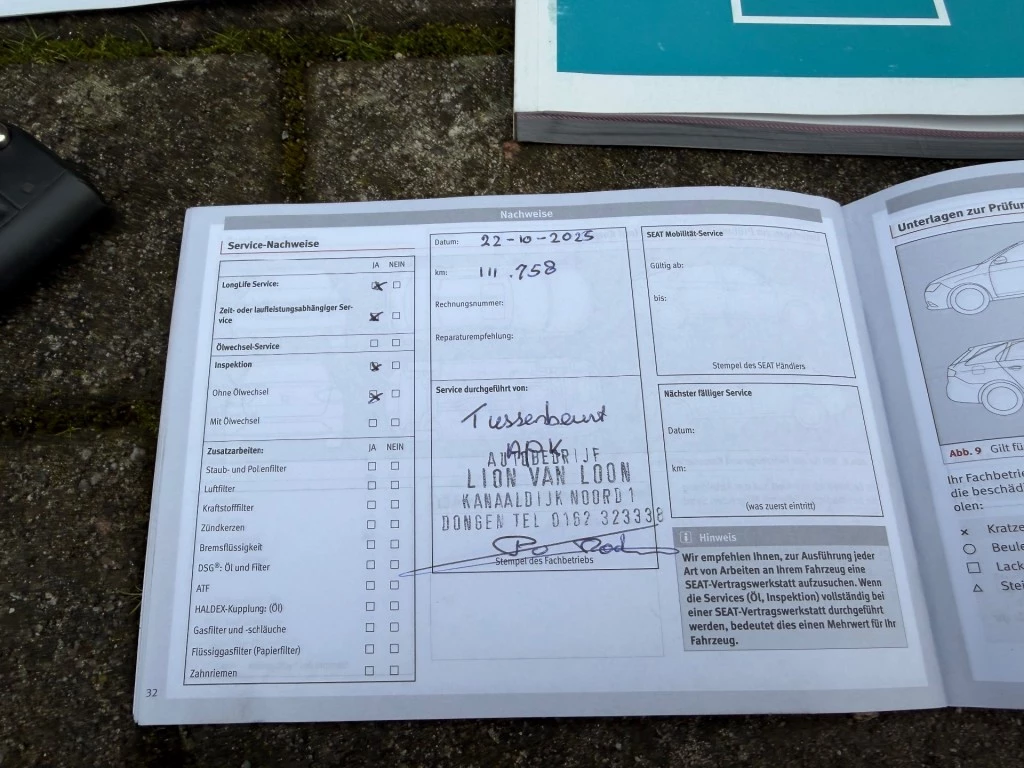 Nachweise
Service-Nachweise
JA NEIN
LongLife Service:
Zeit- oder laufleistungsabhängiger Ser-
vice
Ölwechsel-Service
Inspektion
Ohne Ölwechsel
Mit Ölwechsel
Zusatzarbeiten: JA NEIN
Staub- und Pollenfilter
Luftfilter
Kraftstofffilter
Zündkerzen
Bremsflüssigkeit
DSG®: Öl und Filter
ATF
HALDEX-Kupplung: (Öl)
Gasfilter und -schläuche
Flüssiggasfilter (Papierfilter)
Zahnriemen
32
Datum: 22-10-2025
km: 111.758
Rechnungsnummer:
Reparaturempfehlung:
Service durchgeführt von:
Tussenbeurt
APK
AUTOBEDRIJF
LION VAN LOON
KANAALDIJK NOORD 1
DONGEN TEL 0162 323338
Stempel des Fachbetriebs
SEAT Mobilität-Service
Gültig ab:
bis:
Stempel des SEAT Händlers
Nächster fälliger Service
Datum:
km:
(was zuerst eintritt)
i Hinweis
Wir empfehlen Ihnen, zur Ausführung jeder
Art von Arbeiten an Ihrem Fahrzeug eine
SEAT-Vertragswerkstatt aufzusuchen. Wenn
die Services (Öl, Inspektion) vollständig bei
einer SEAT-Vertragswerkstatt durchgeführt
werden, bedeutet dies einen Mehrwert für Ihr
Fahrzeug.
Unterlagen zur Prüfun
Abb. 9 Gilt fü
Ihr Fachbetrie
die beschäd
olen:
Kratze
Beule
Lack
Stei